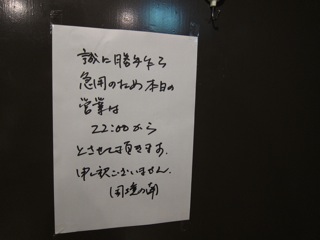 誠に勝手ながら
急用のため本日の
営業は
22:00から
とさせて頂きます.
申し訳ございません.